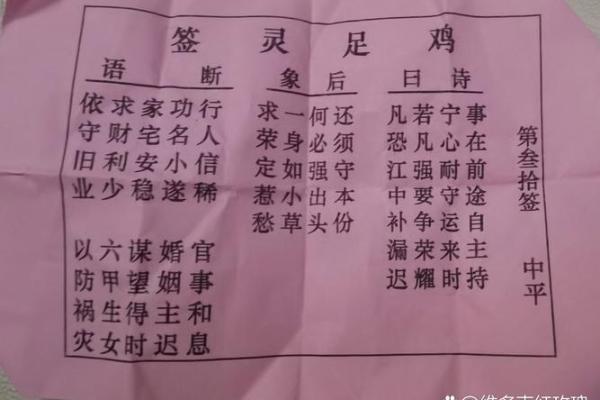 鸡足灵签
第叁拾签
中平
诗曰
事在前途自主持
宁心耐守运来时
若凡强要争荣耀
凡恐江中补漏迟
后象
还须守本份
何必强出头
一身如小草
求荣定惹愁
断语
行人信稀
功名小遂
家宅安稳
求财利少
依守旧业
官事和息
婚姻主迟
谋望得时
六甲生女
以防祸灾